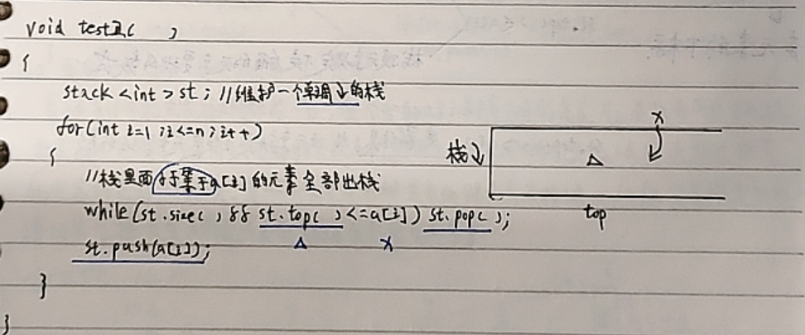 void test2( )
{
stack<int> st; //维护一个单调↓的栈
for(int i=1; i<=n; i++)
{
//栈里面小于等于a[i]的元素全部出栈
while(st.size( ) && st.top( )<=a[i]) st.pop( );
st.push(a[i]);
△ x
}
}
x
栈↓ △
top